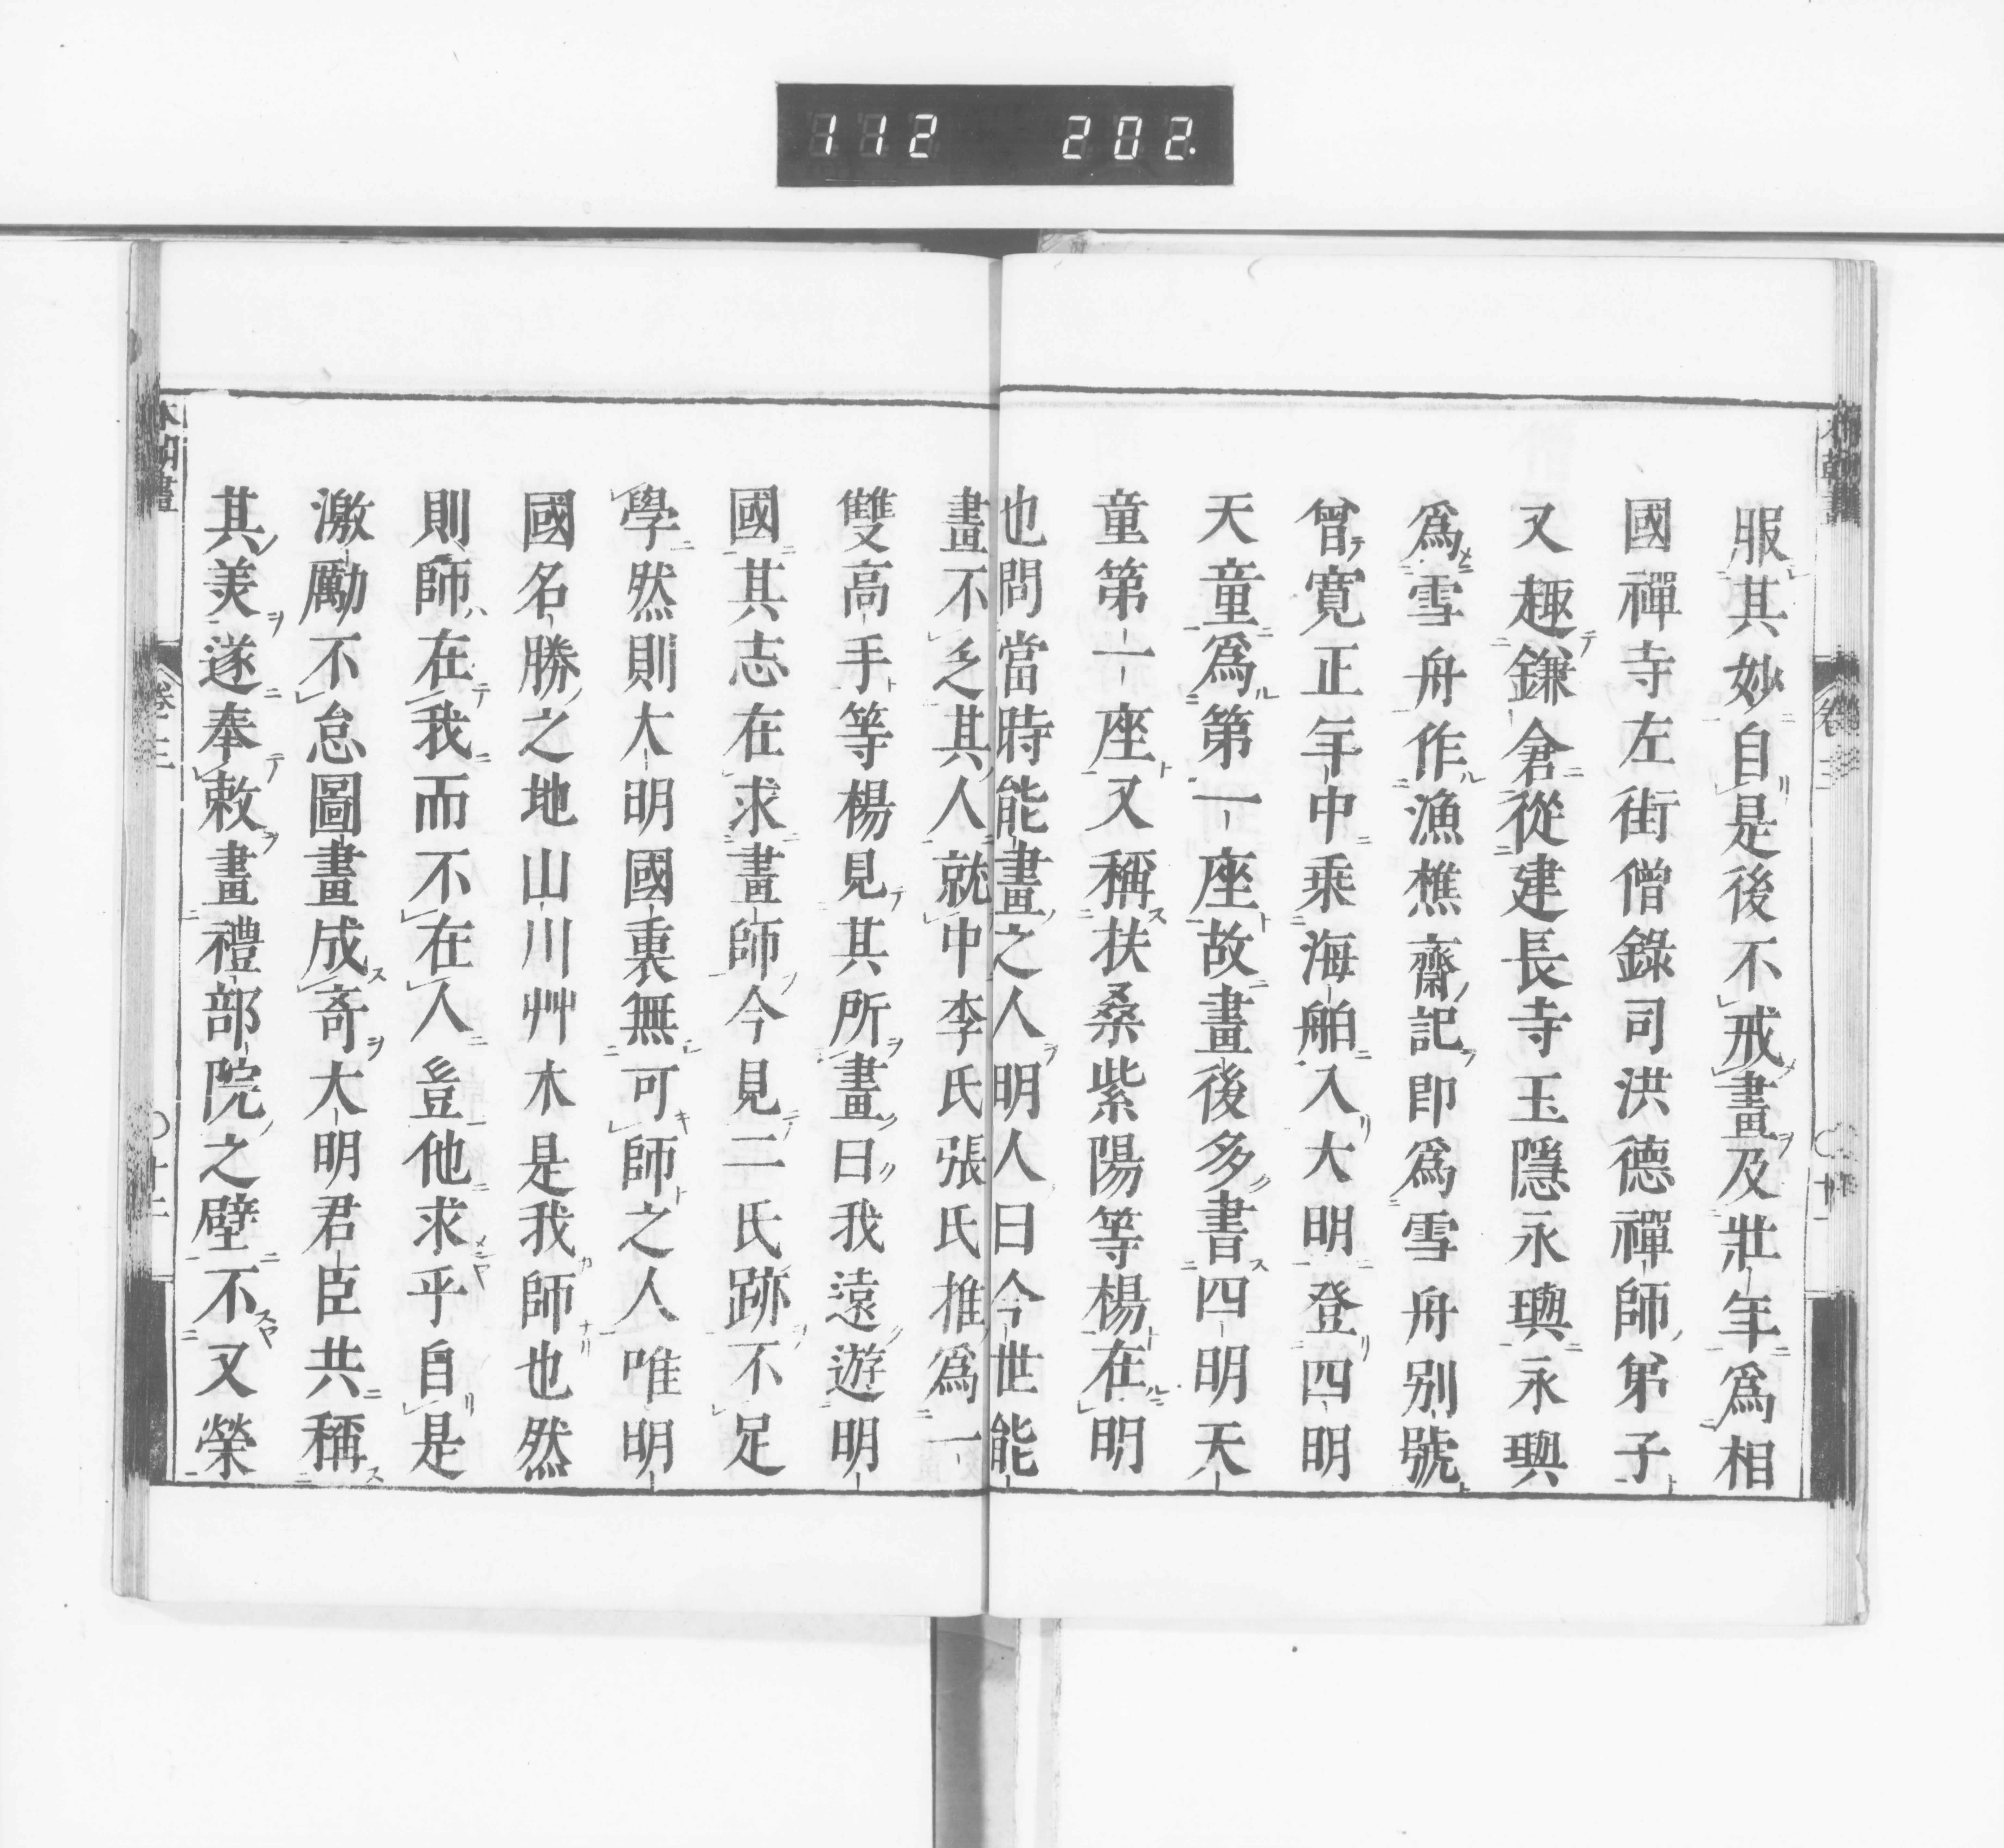 112 202.
服其妙自是後不戒畫及壯年爲相
國禪寺左街僧錄司洪德禪師弟子
又趣鎌倉從建長寺玉隱永璵永璵
爲雪舟作漁樵齋記即爲雪舟别號
曾寛正年中乗海舶入大明登四明
天童爲第一座故畫後多書四明天
童第一座又稱扶桑紫陽等楊在明
也問當時能畫之人明人曰今世能
畫不乏其人就中李氏張氏推爲一
雙高手等楊見其所畫曰我遠遊明
國其志在求畫師今見二氏跡不足
學然則大明國裏無可師之人唯明
國名勝之地山川艸木是我師也然
則師在我而不在人豈他求乎自是
激勵不怠圖畫成奇大明君臣共稱
其美遂奉敕畫禮部院之壁不又榮
本朝畫
卷三
十二